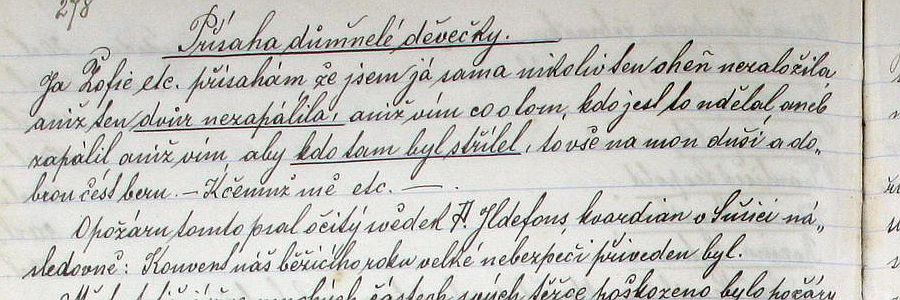 278
Přísaha důmnělé děvečky.
Ja Žofie etc. přísahám že jsem já sama nikoliv ten oheň nezaložila,
aniž ten dvůr nezapálila, aniž vím co o tom, kdo jest to udělal, aneb
zapálil aniž vím, aby kdo tam byl střílel, to vše na mou duši a do„
brou čest beru. – K čemuž mě etc. — .
O požáru tomto psal očitý svědek P. Ildefons, kvardian v Sušici ná„
sledovně: Konvent náš běžícího roku velké nebezpečí přiveden byl.
částech svých těžce poškozeno bylo požáry